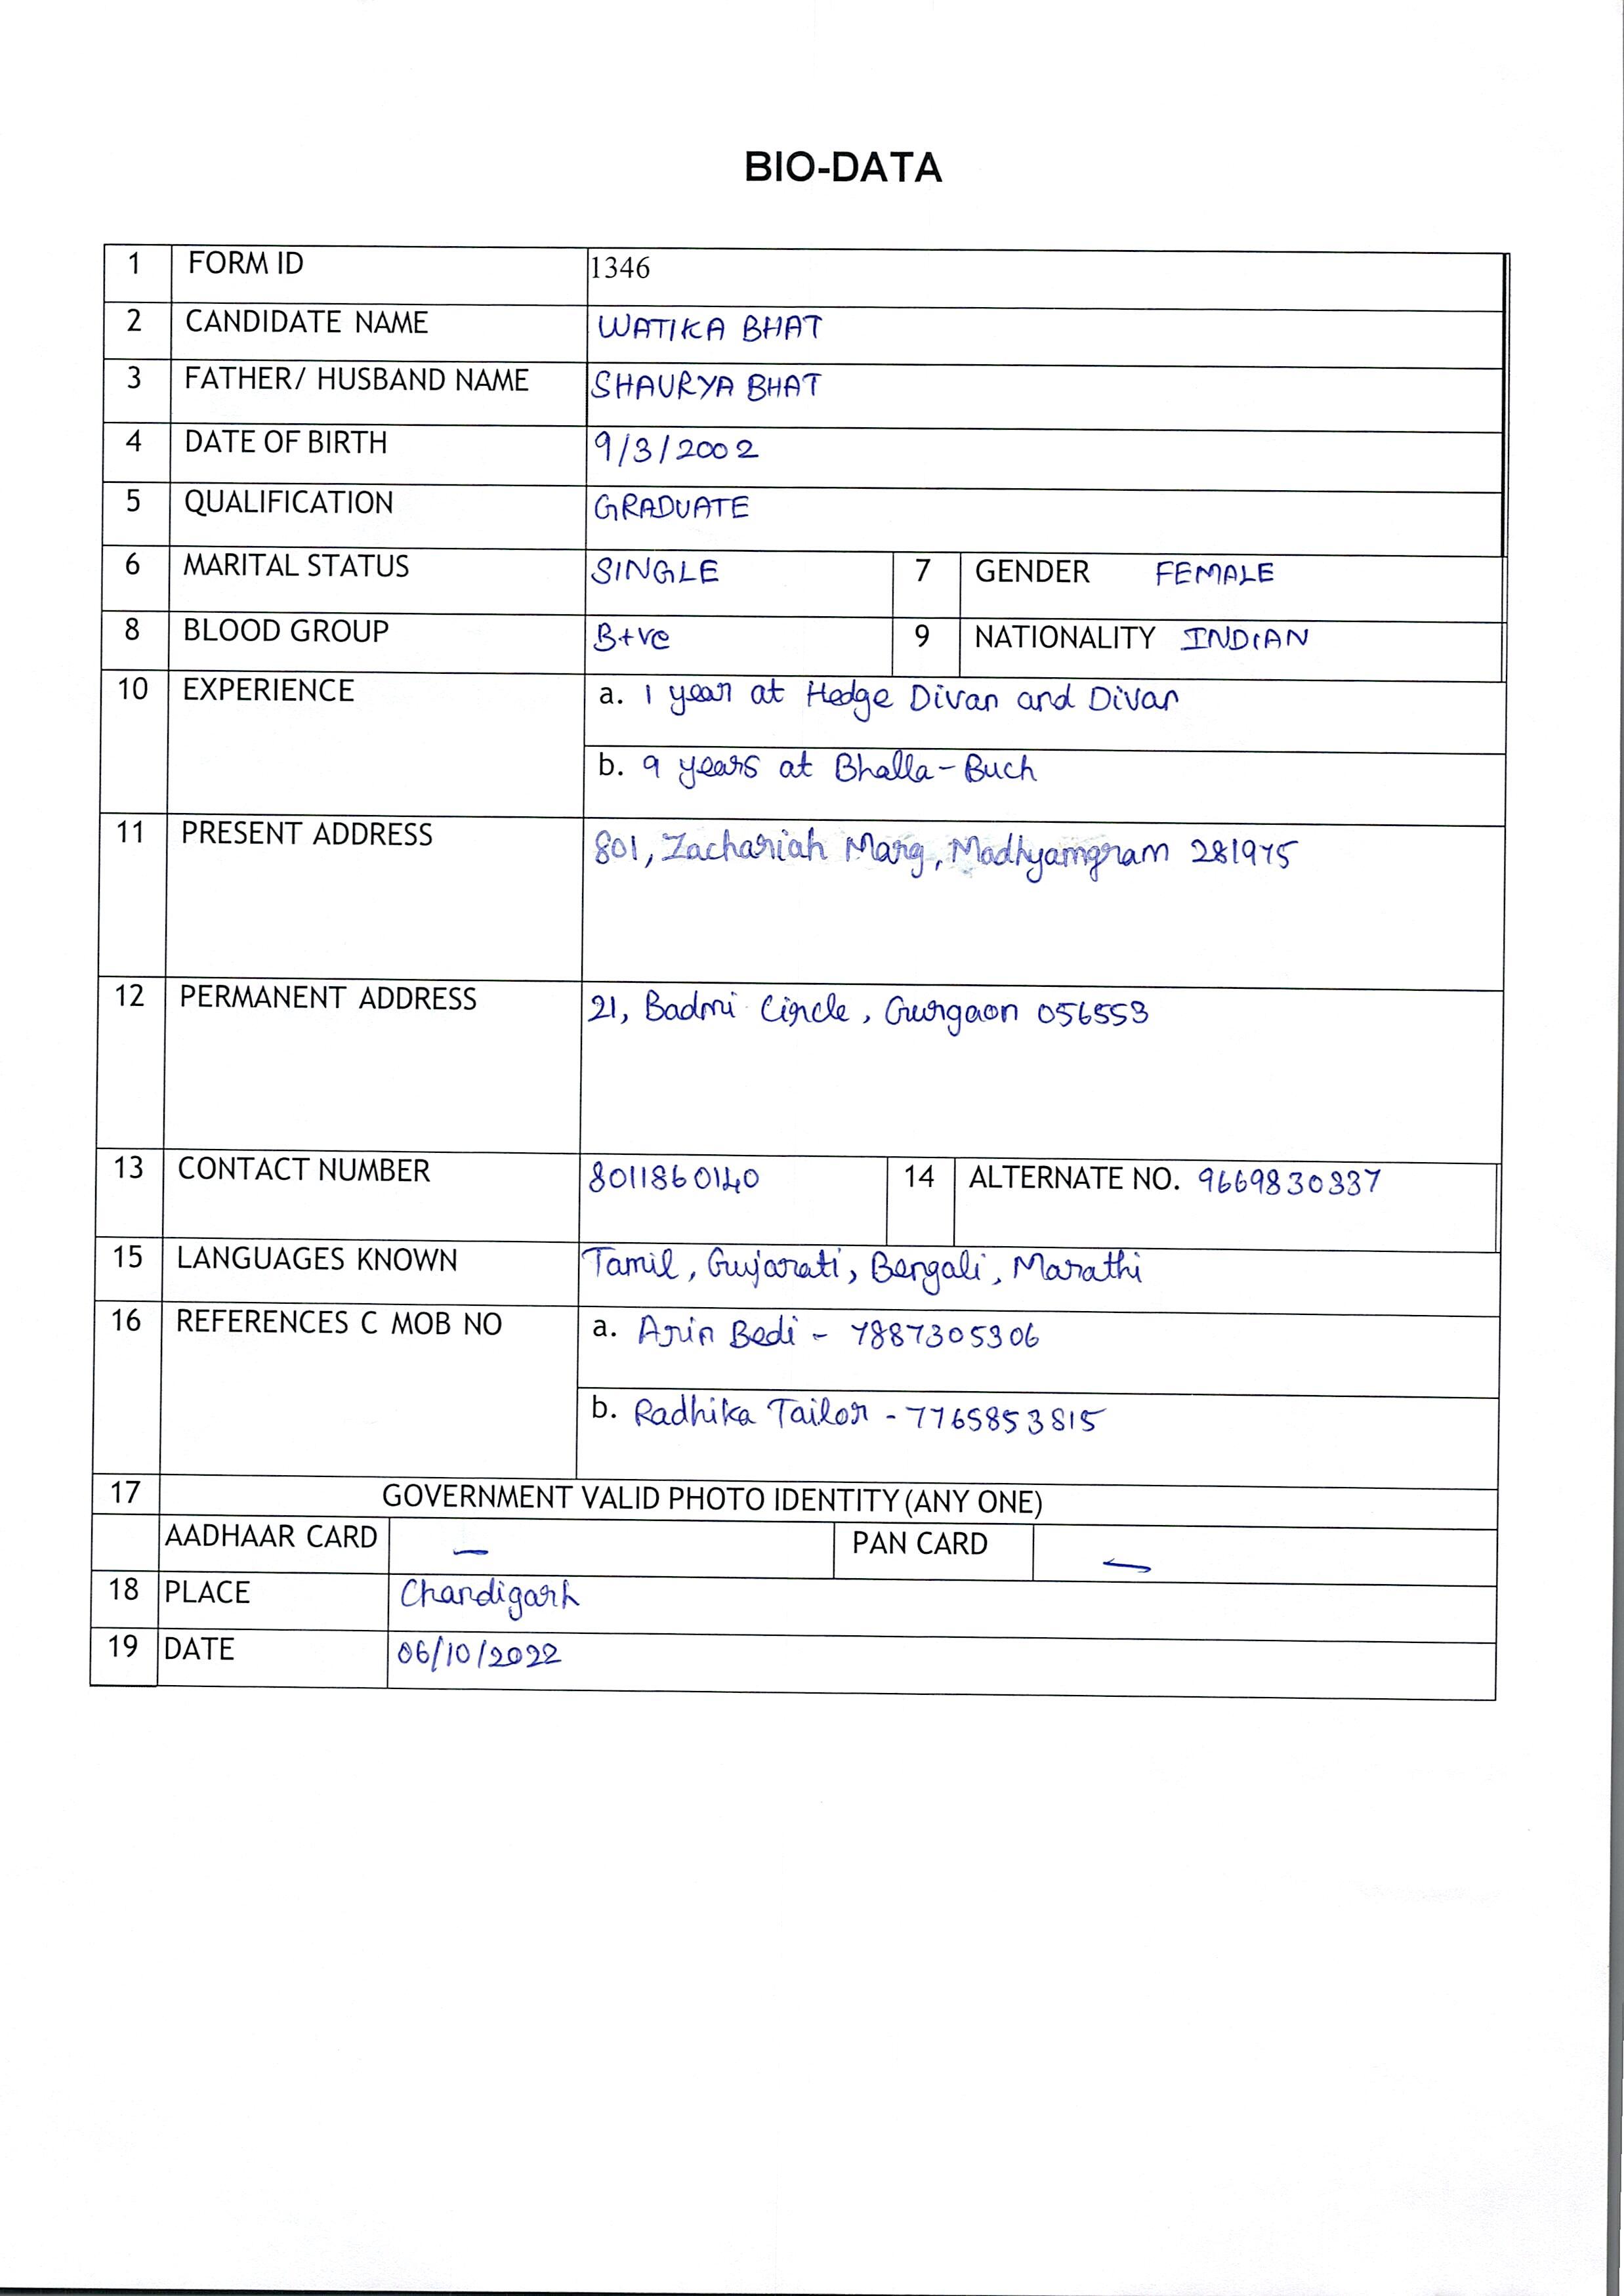 BIO-DATA
1 FORM ID 1346
2 CANDIDATE NAME WATIKA BHAT
3 FATHER/ HUSBAND NAME SHAURYA BHAT
4 DATE OF BIRTH 9/3/2002
5 QUALIFICATION GRADUATE
6 MARITAL STATUS SINGLE 7 GENDER FEMALE
8 BLOOD GROUP B+ve 9 NATIONALITY INDIAN
10 EXPERIENCE a. 1 year at Hedge Divan and Divan
b. 9 years at Bhalla-Buch
11 PRESENT ADDRESS 801, Zachariah Marg, Madhyamgram 281975
12 PERMANENT ADDRESS 21, Badmi Circle, Gurgaon 056553
13 CONTACT NUMBER 8011860140 14 ALTERNATE NO. 9669830337
15 LANGUAGES KNOWN Tamil, Gujarati, Bengali, Marathi
16 REFERENCES C MOB NO a. Arin Bedi - 7887305306
b. Radhika Tailor - 7765853815
17 GOVERNMENT VALID PHOTO IDENTITY (ANY ONE)
AADHAAR CARD — PAN CARD —
18 PLACE Chandigarh
19 DATE 06/10/2022